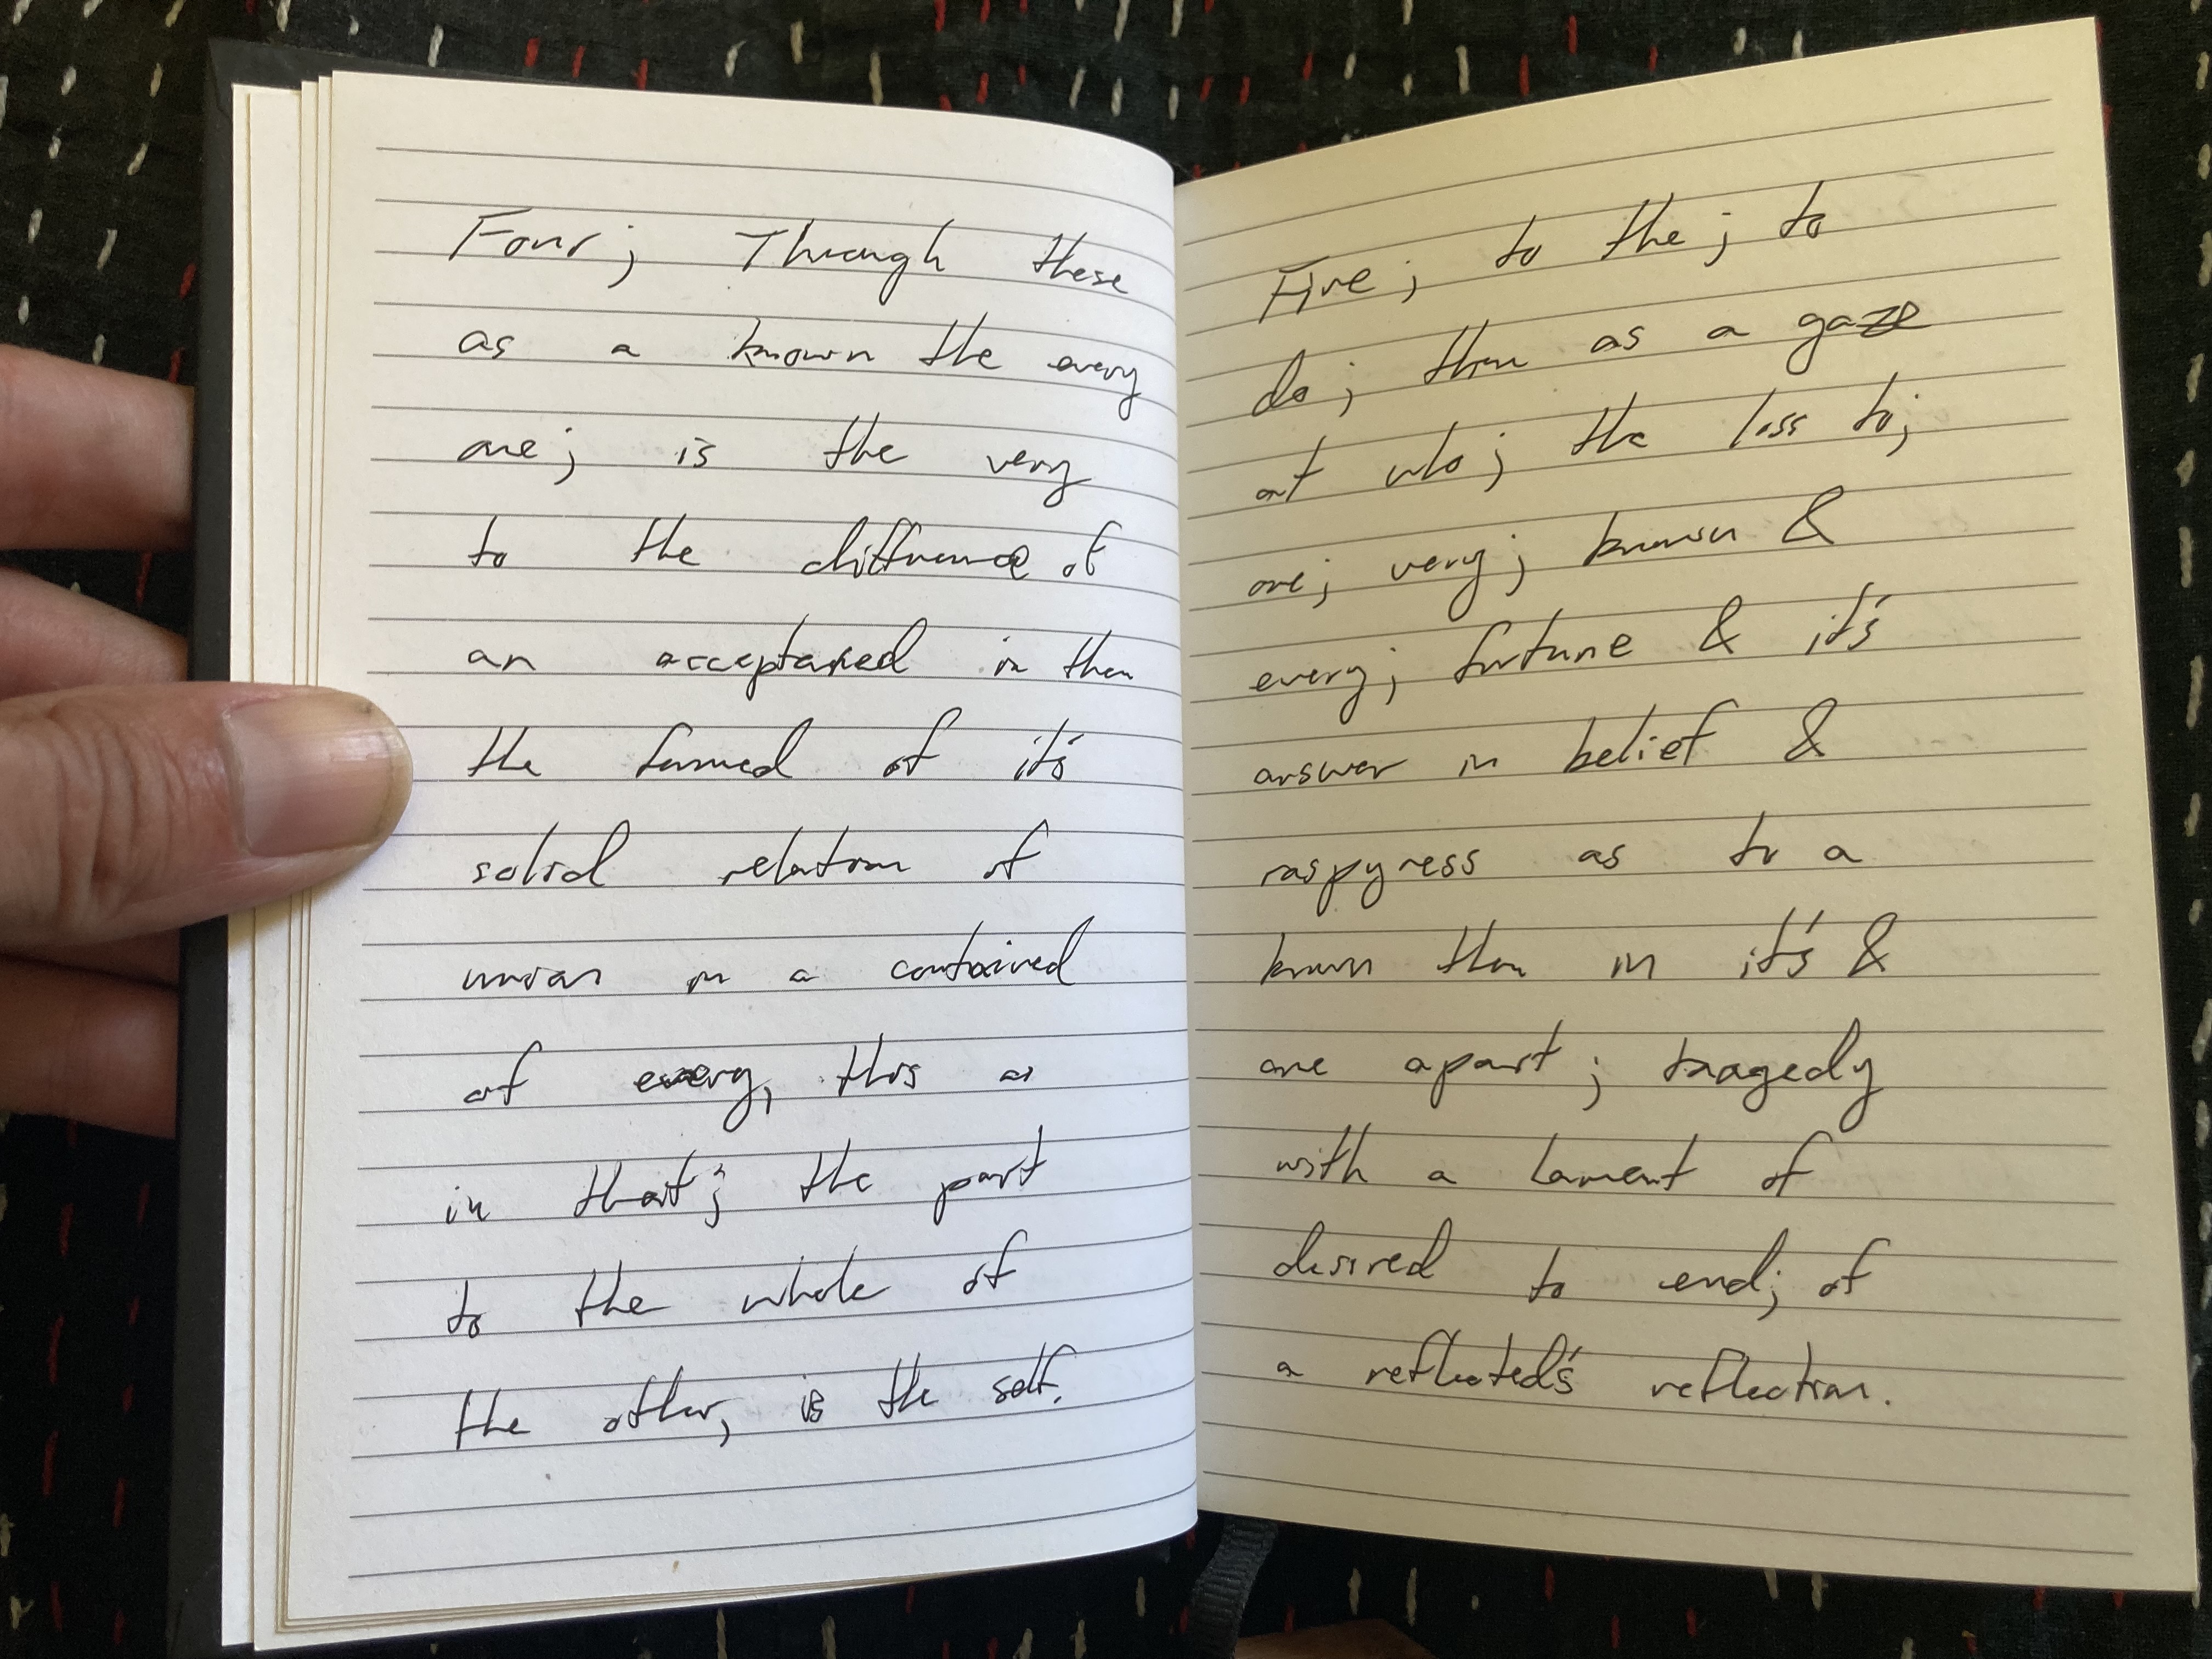 Four; Through these
as a known the every
one; is the very
to the difference of
an acceptanced in then
the formed of it's
solid relation of
union in a contained
of every, this as
in that; the part
to the whole of
the other, is the self.
Five; to the; to
do; then as a gaze
at who; the loss to;
one; very; known &
every; fortune & it's
answer in belief &
raspyness as to a
known then in it's &
one apart; tragedy
with a lament of
desired to end; of
a reflected's reflection.